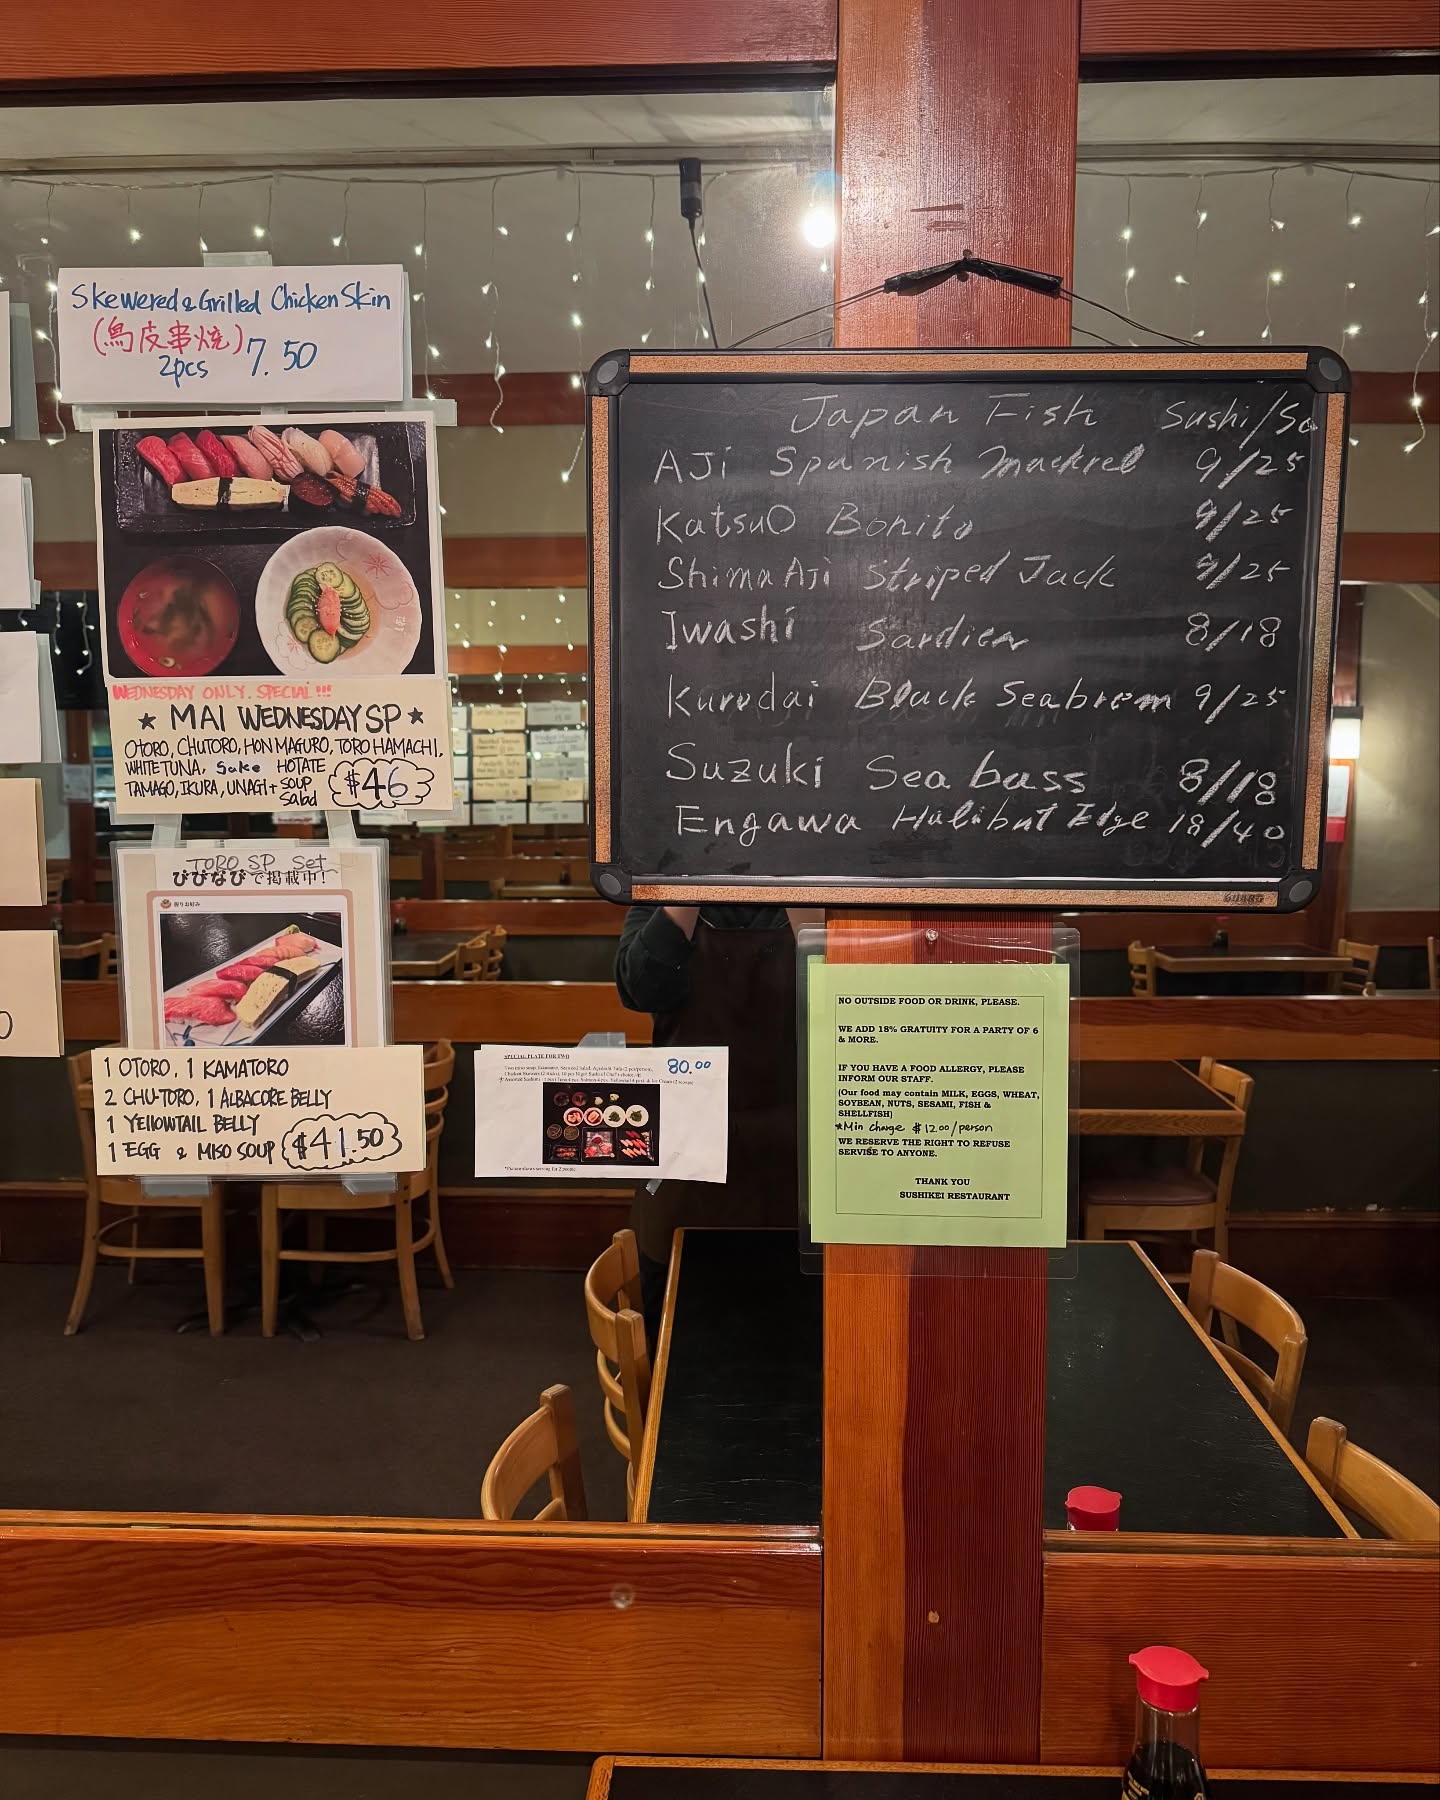 Skewered & Grilled Chicken Skin
(鳥皮串焼)
2pcs 7.50
WEDNESDAY ONLY. SPECIAL!!!
★ MAI WEDNESDAY SP ★
OTORO, CHUTORO, HON MAGURO, TORO HAMACHI,
WHITE TUNA, Sake HOTATE
TAMAGO, IKURA, UNAGI + SOUP
Salad
$46
TORO SP Set
びびなびで掲載中!
握りお好み
1 OTORO, 1 KAMATORO
2 CHU-TORO, 1 ALBACORE BELLY
1 YELLOWTAIL BELLY
1 EGG & MISO SOUP $41.50
SPECIAL PLATE FOR TWO
80.00
Japan Fish Sushi/Sa
AJi Spanish Mackrel 9/25
KatsuO Bonito 9/25
Shima AJi Striped Jack 9/25
Iwashi Sardien 8/18
Kurodai Black Seabrem 9/25
Suzuki Sea bass 8/18
Engawa Halibut Edge 18/40
NO OUTSIDE FOOD OR DRINK, PLEASE.
WE ADD 18% GRATUITY FOR A PARTY OF 6
& MORE.
IF YOU HAVE A FOOD ALLERGY, PLEASE
INFORM OUR STAFF.
(Our food may contain MILK, EGGS, WHEAT,
SOYBEAN, NUTS, SESAMI, FISH &
SHELLFISH)
*Min charge $12.00/person
WE RESERVE THE RIGHT TO REFUSE
SERVISE TO ANYONE.
THANK YOU
SUSHIKEI RESTAURANT